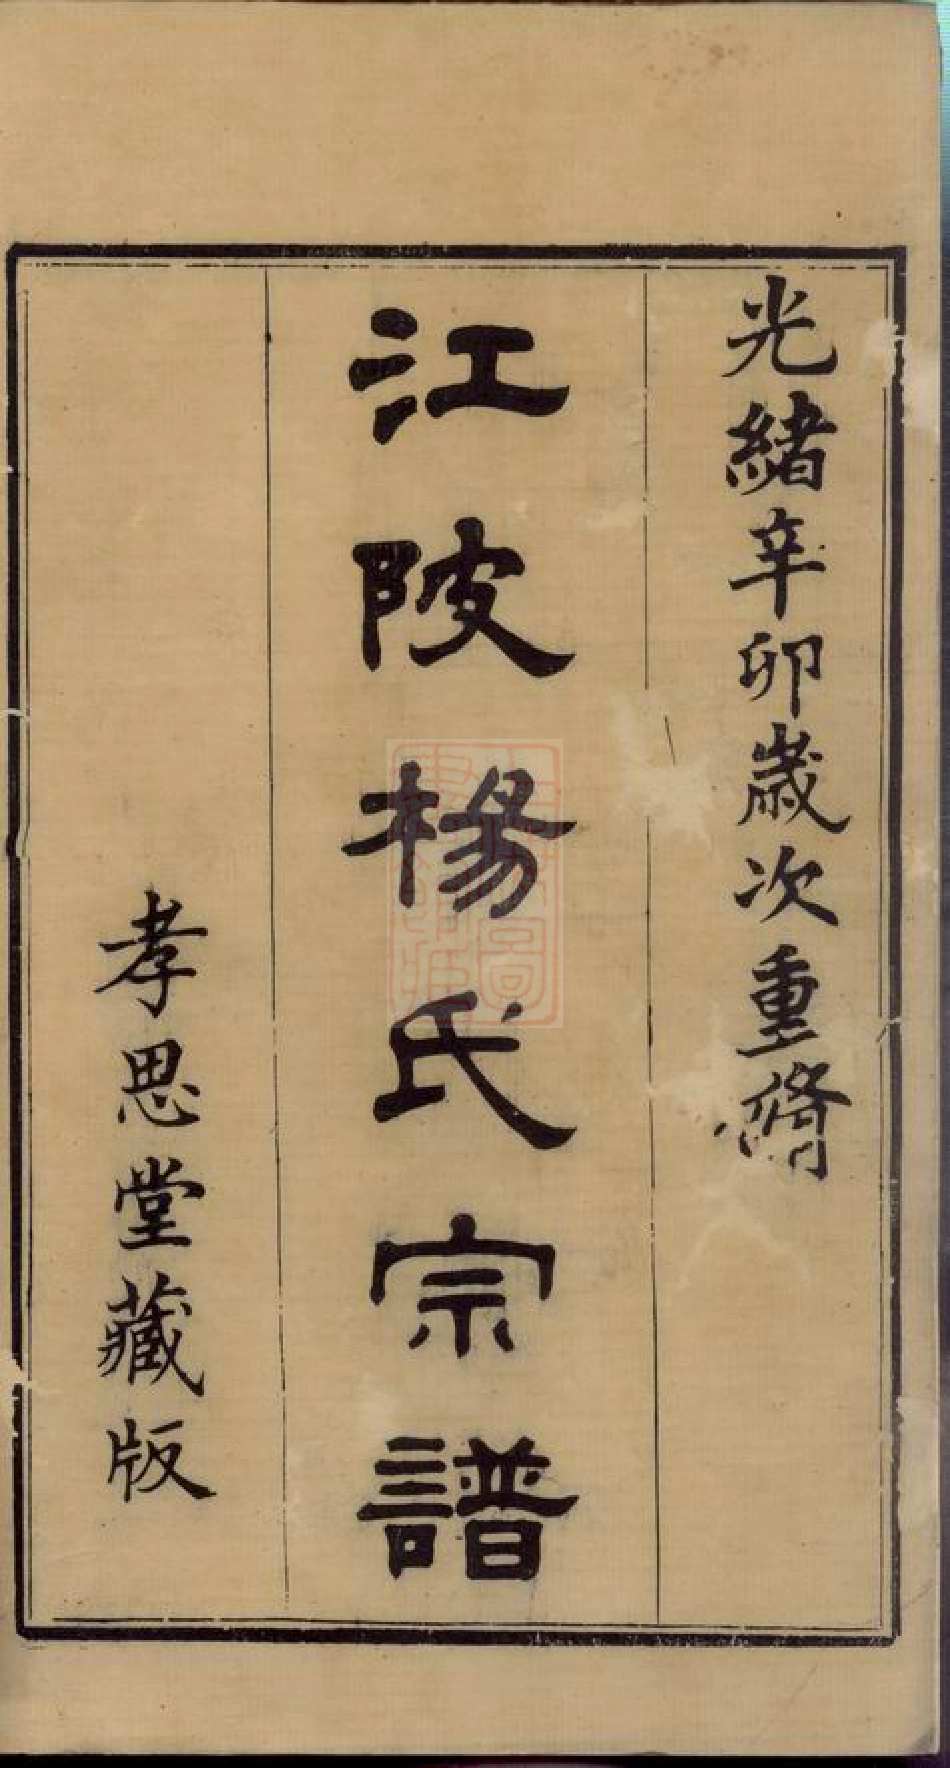 光緒辛卯歲次重脩
江陂楊氏宗譜
孝思堂藏版